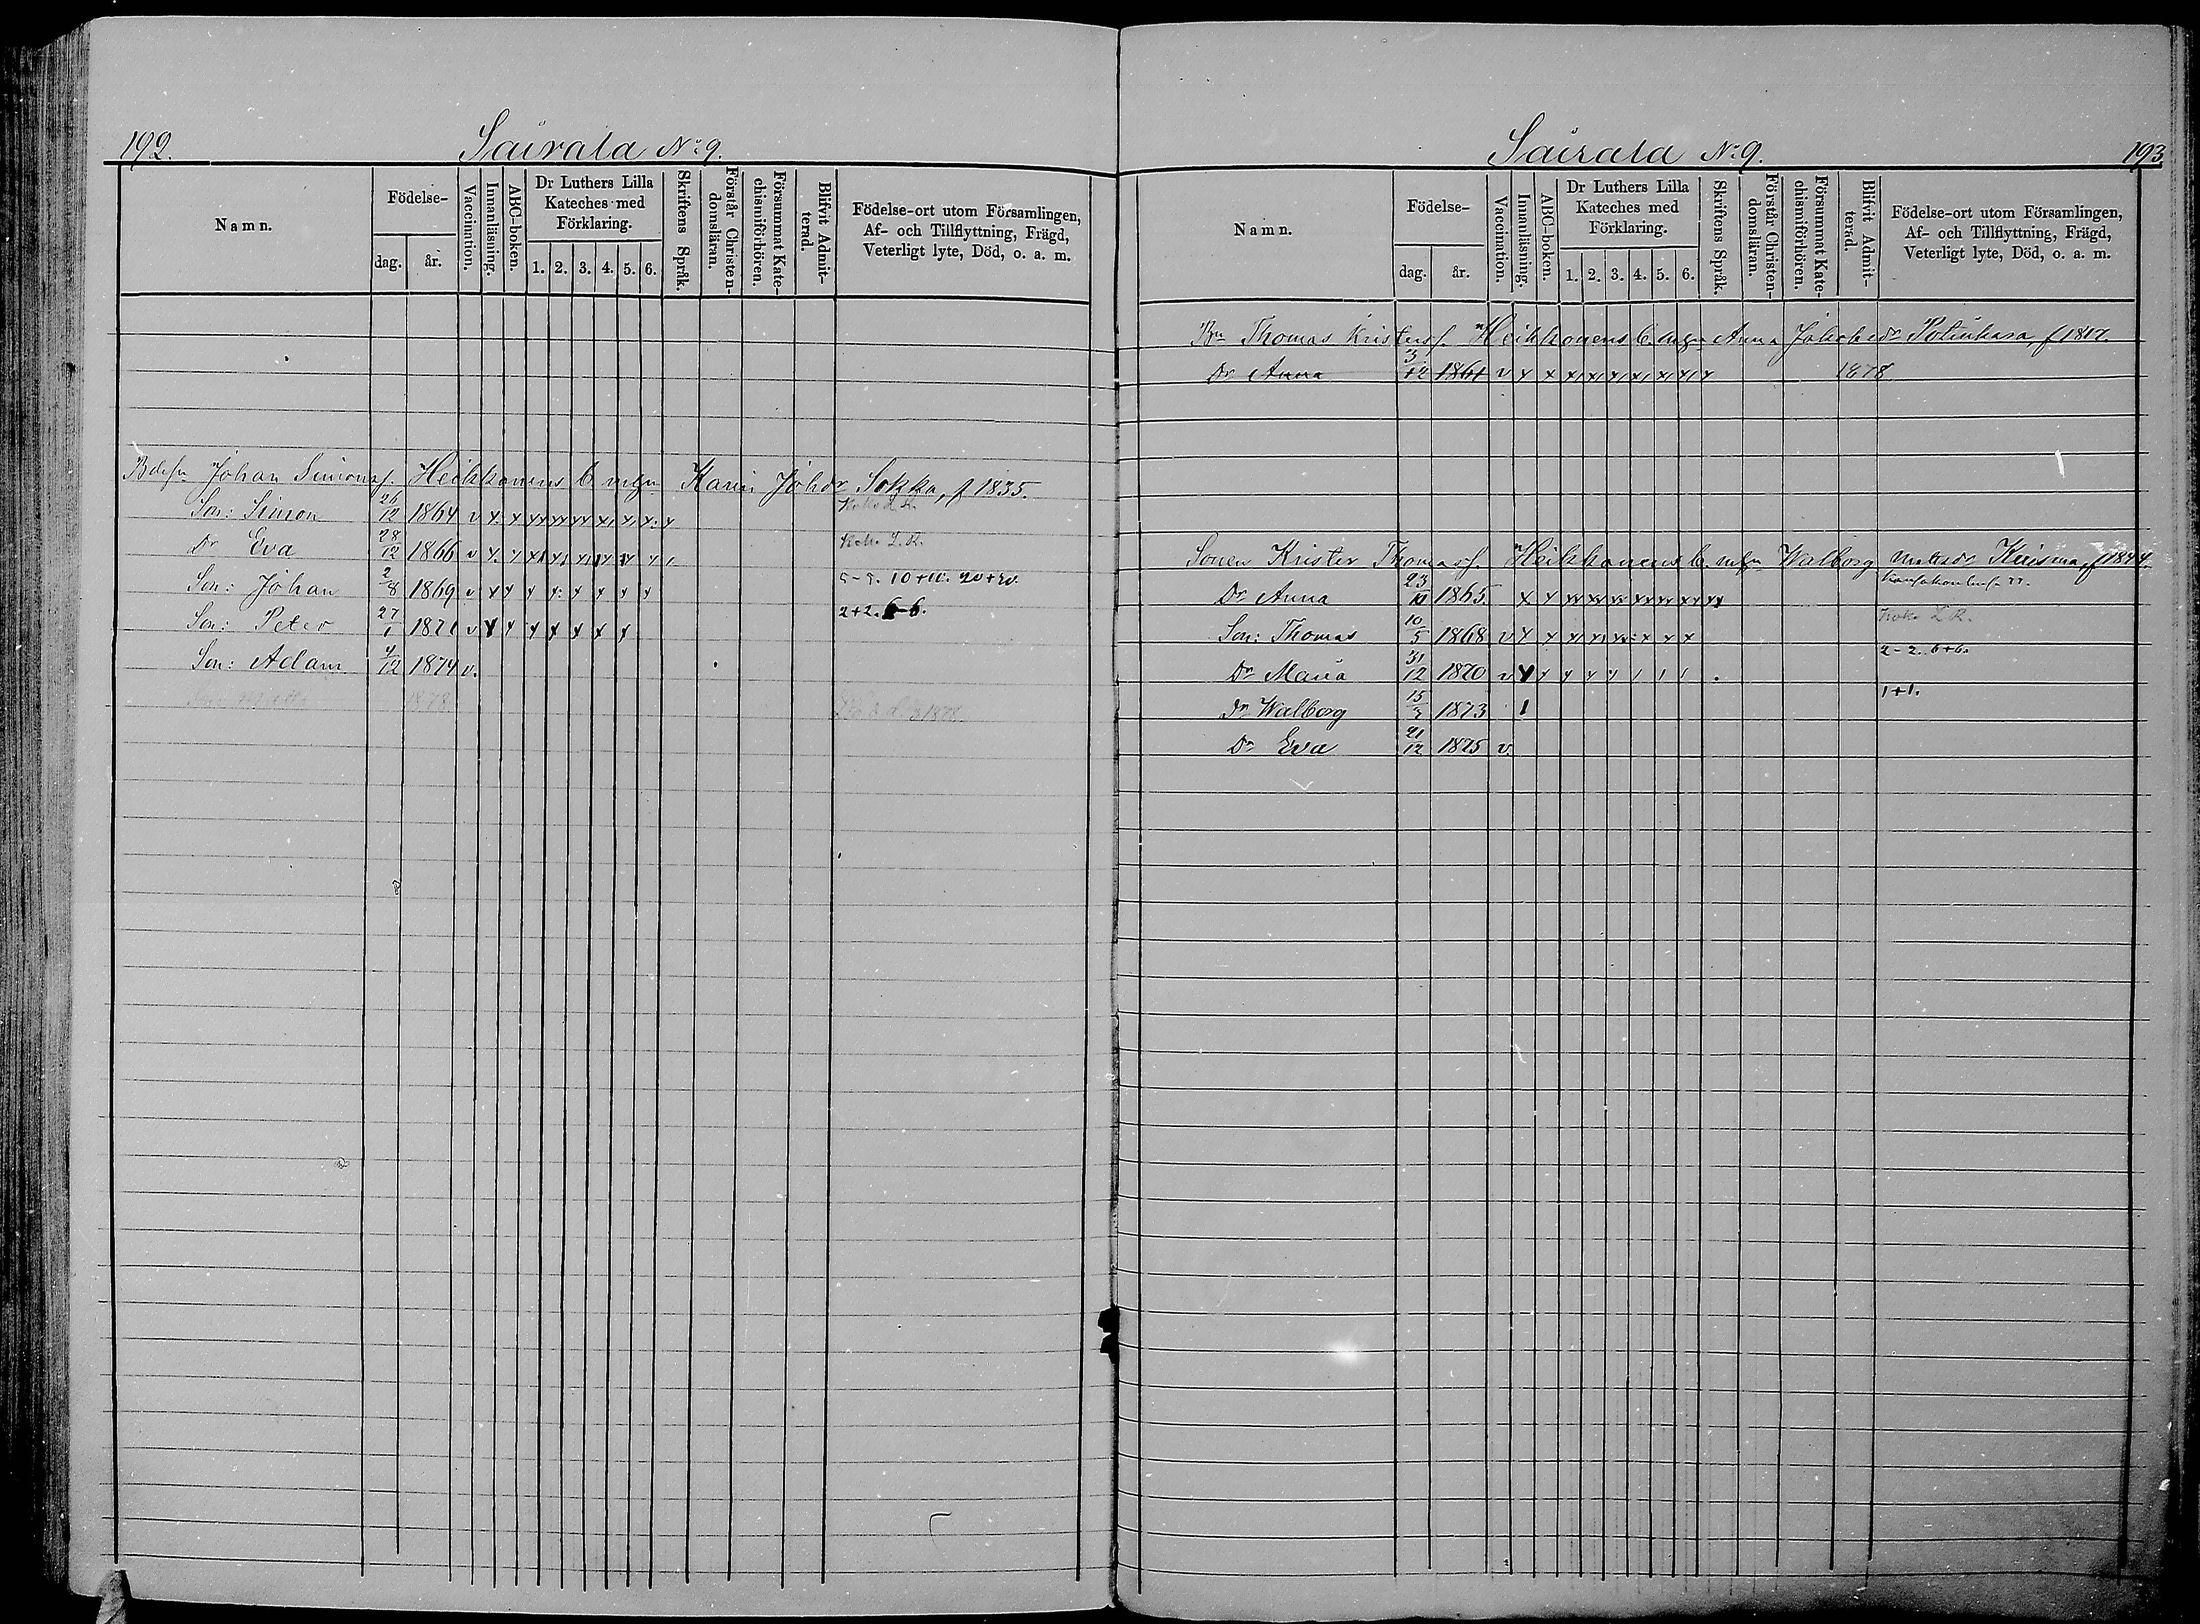 192. Sairala No 9.
Namn. Födelse- dag. år. Vaccination. Innanläsning. ABC-boken. Dr Luthers Lilla Kateches med Förklaring. 1. 2. 3. 4. 5. 6. Skriftens Språk. Förstår Christendomsläran. Försummat Katechismiförhören. Blifvit Admitterad. Födelse-ort utom Församlingen, Af- och Tillflyttning, Frägd, Veterligt lyte, Död, o. a. m.
Johan Simonsf. Heikkonens b. m. Karin Joh:dr Sokka, f 1835.
Son: Simon 26/12 1864 v
Dr Eva 28/12 1866 v
Son: Johan 2/8 1869 v 10+10. 20+20.
Son: Peter 27/1 1871 v 2+2. 6-6.
Son: Adam 4/12 1874 v.
1878
Sairala No 9. 193
Namn. Födelse- dag. år. Vaccination. Innanläsning. ABC-boken. Dr Luthers Lilla Kateches med Förklaring. 1. 2. 3. 4. 5. 6. Skriftens Språk. Förstår Christendomsläran. Försummat Katechismiförhören. Blifvit Admitterad. Födelse-ort utom Församlingen, Af- och Tillflyttning, Frägd, Veterligt lyte, Död, o. a. m.
Bn Thomas Kristersf. Heikkonens b. m. Anna Jakobsdr f 1817.
Dr Anna 3/12 1861 v 1878
Sonen Krister Thomasf. Heikkonens b. m. Walborg f 1844.
Dr Anna 23/10 1865.
Son: Thomas 10/5 1868 v
Dr Maria 31/12 1870 v 2-2. 6+6.
Dr Walborg 15/3 1873 1+1.
Dr Eva 21/12 1875 v.